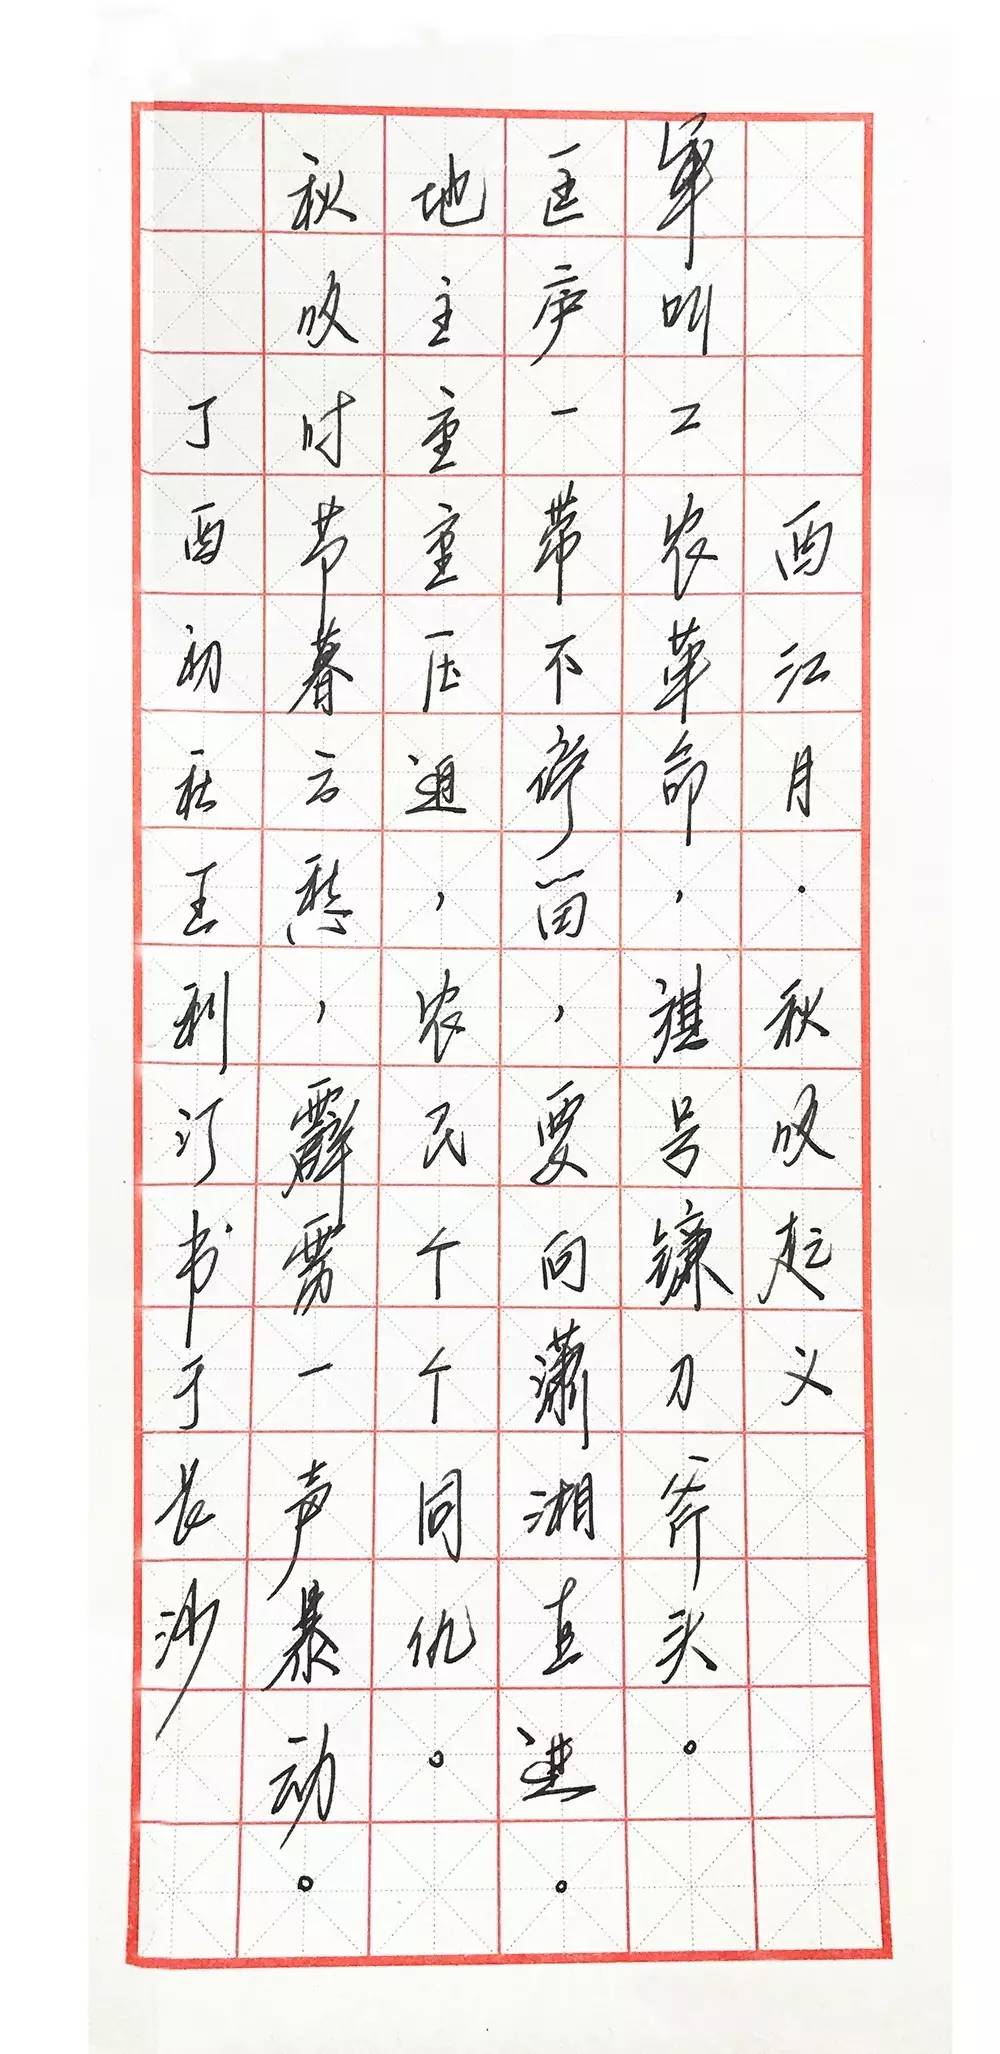 西江月·秋收起义
军叫工农革命，旗号镰刀斧头。
匡庐一带不停留，要向潇湘直进。
地主重重压迫，农民个个同仇。
秋收时节暮云愁，霹雳一声暴动。
丁酉初秋王利汀书于长沙